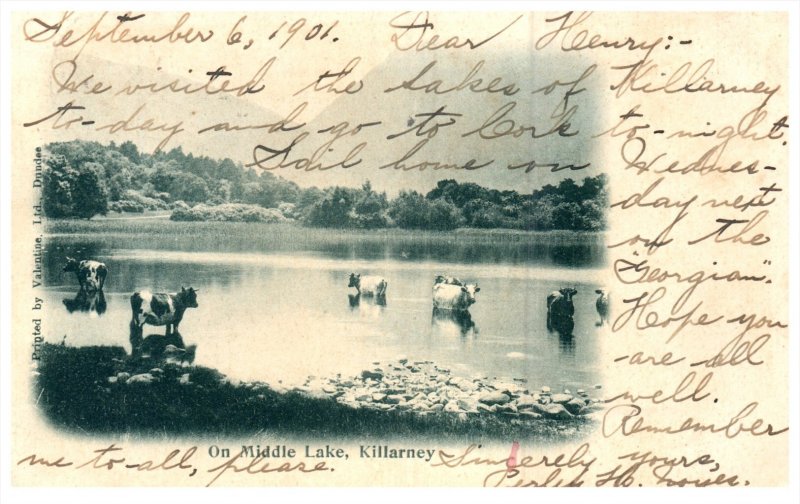 September 6, 1901. Dear Henry:-
We visited the Lakes of Killarney
to-day and go to Cork to-night.
Sail home on Wednes-
day next
on the
"Georgian".
Hope you
are all
well.
Remember
me to-all, please.
Sincerely yours,
H.
On Middle Lake, Killarney
Printed by Valentine, Ltd., Dundee